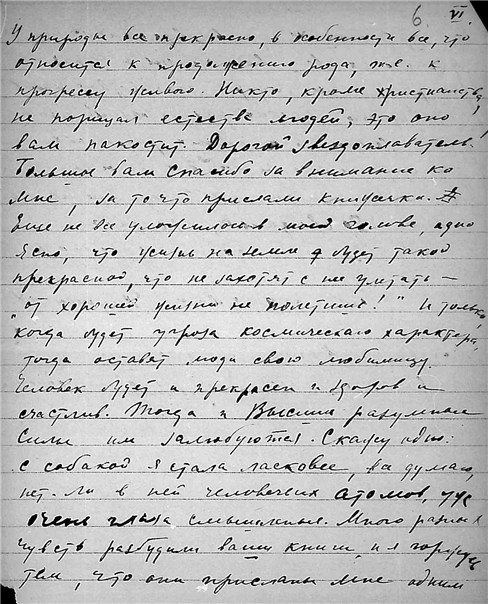 6. VI.
У природы все прекрасно, в особенности все, что
относится к продолжению рода, т.е. к
прогрессу живого. Никто, кроме христианства,
не порицал естества людей, это оно
вам пакостит. Дорогой звездоплаватель.
Большое вам спасибо за внимание ко
мне, за то что прислали книжечки.
Еще не все уложилось в моей голове, одно
ясно, что жизнь на земле будет такой
прекрасной, что не захотят с нее улетать —
"от хорошей жизни не полетишь!" И только,
когда будет угроза космического характера,
тогда оставят люди свою любимицу.
Человек будет и прекрасен и здоров и
счастлив. Тогда и Высшия разумные
Силы им залюбуются. Скажу одно:
с собакой я стала ласковее, все думаю,
нет-ли в ней человечьих атомов, уж
очень глаза смышленые. Много разных
чувств разбудили ваши книги, и я горжусь
тем, что они присланы мне одним